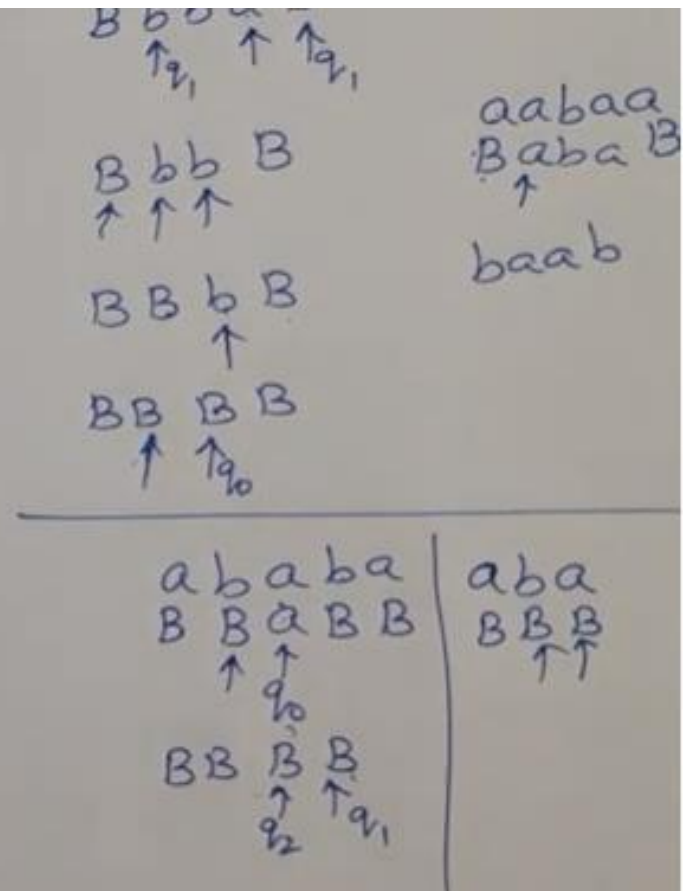 B b b a
q₁ q₁
B b b B
B B b B
B B B B
q₀
a a b a a
B a b a B
b a a b
a b a b a
B B a B B
q₀
B B B B
q₂ q₁
a b a
B B B